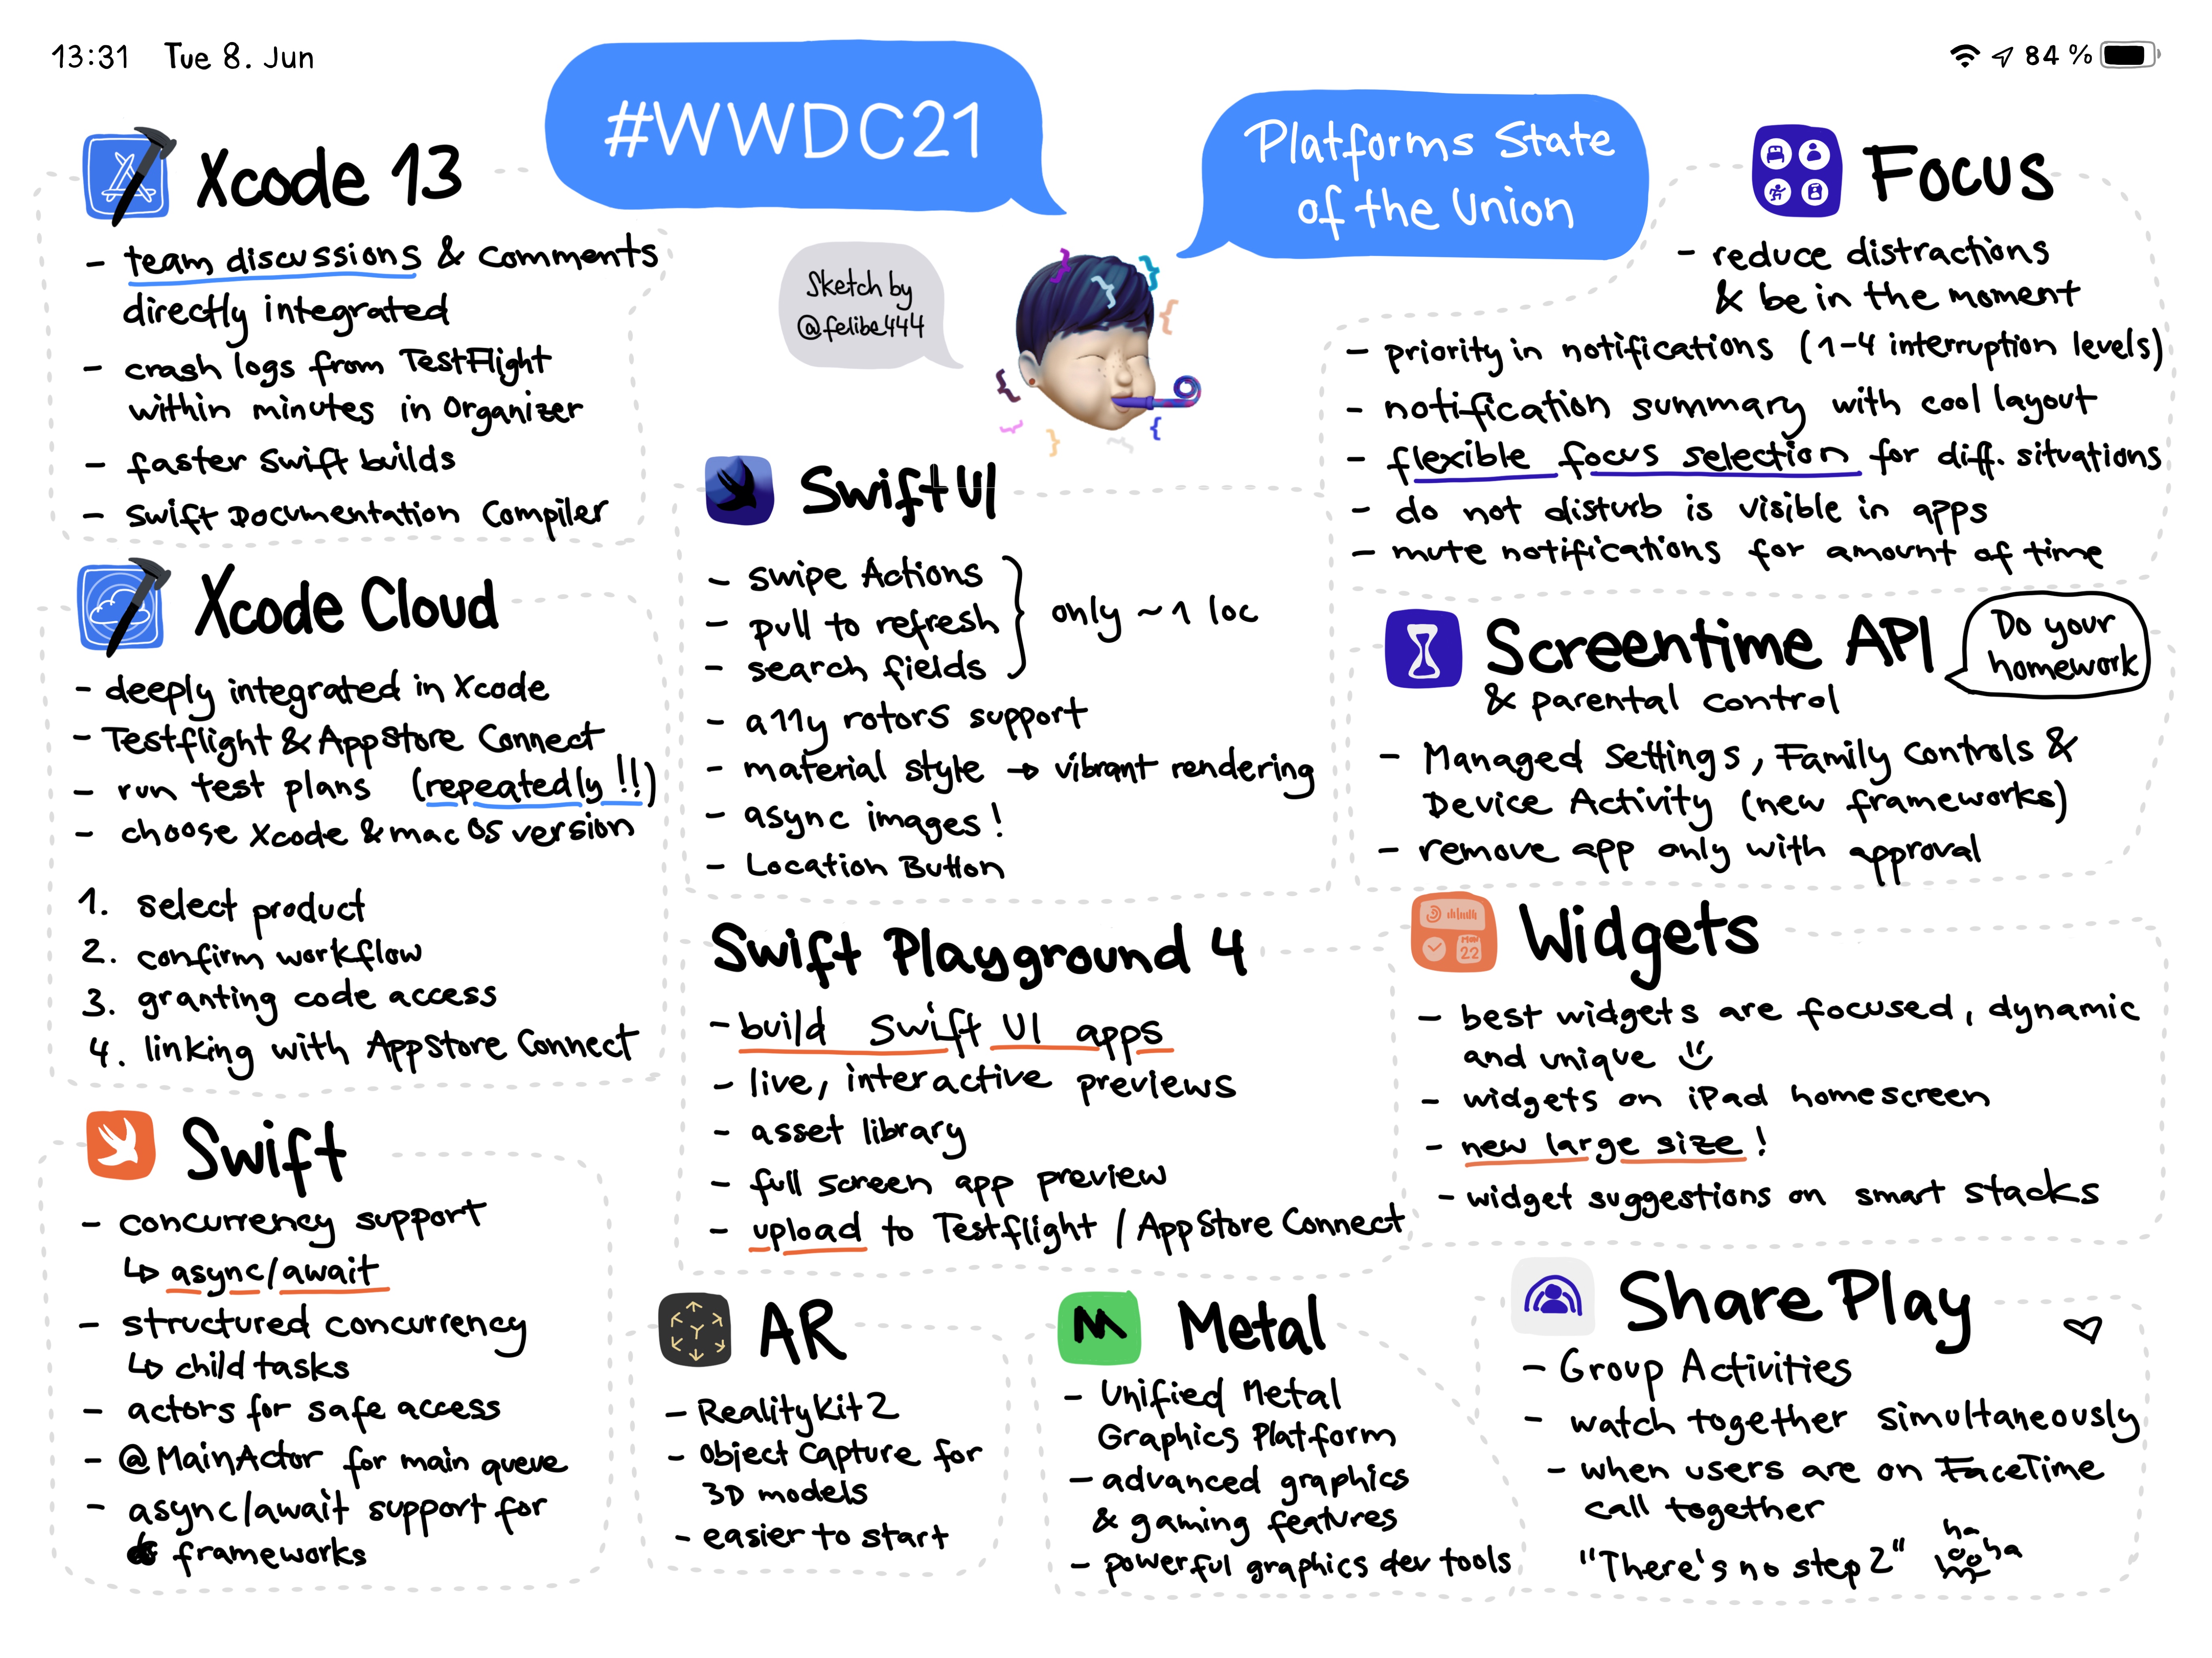 13:31 Tue 8. Jun
84 %
#WWDC21
Platforms State
of the Union
Sketch by
@felibe444
Xcode 13
- team discussions & comments
directly integrated
- crash logs from TestFlight
within minutes in Organizer
- faster Swift builds
- Swift Documentation Compiler
Xcode Cloud
- deeply integrated in Xcode
- Testflight & AppStore Connect
- run test plans (repeatedly!!)
- choose Xcode & macOS version
1. select product
2. confirm workflow
3. granting code access
4. linking with AppStore Connect
Swift
- concurrency support
↳ async/await
- structured concurrency
↳ child tasks
- actors for safe access
- @MainActor for main queue
- async/await support for
frameworks
SwiftUI
- swipe Actions
- pull to refresh
- search fields
} only ~1 loc
- a11y rotors support
- material style → vibrant rendering
- async images!
- Location Button
Swift Playground 4
- build Swift UI apps
- live, interactive previews
- asset library
- full screen app preview
- upload to Testflight / AppStore Connect
AR
- RealityKit 2
- Object Capture for
3D models
- easier to start
Metal
- Unified Metal
Graphics Platform
- advanced graphics
& gaming features
- powerful graphics dev tools
Focus
- reduce distractions
& be in the moment
- priority in notifications (1-4 interruption levels)
- notification summary with cool layout
- flexible focus selection for diff. situations
- do not disturb is visible in apps
- mute notifications for amount of time
Screentime API
& parental control
Do your
homework
- Managed Settings, Family Controls &
Device Activity (new frameworks)
- remove app only with approval
MON
22
Widgets
- best widgets are focused, dynamic
and unique
- widgets on iPad homescreen
- new large size!
- widget suggestions on smart stacks
Share Play
- Group Activities
- watch together simultaneously
- when users are on FaceTime
call together
"There's no step 2"
ha
ha